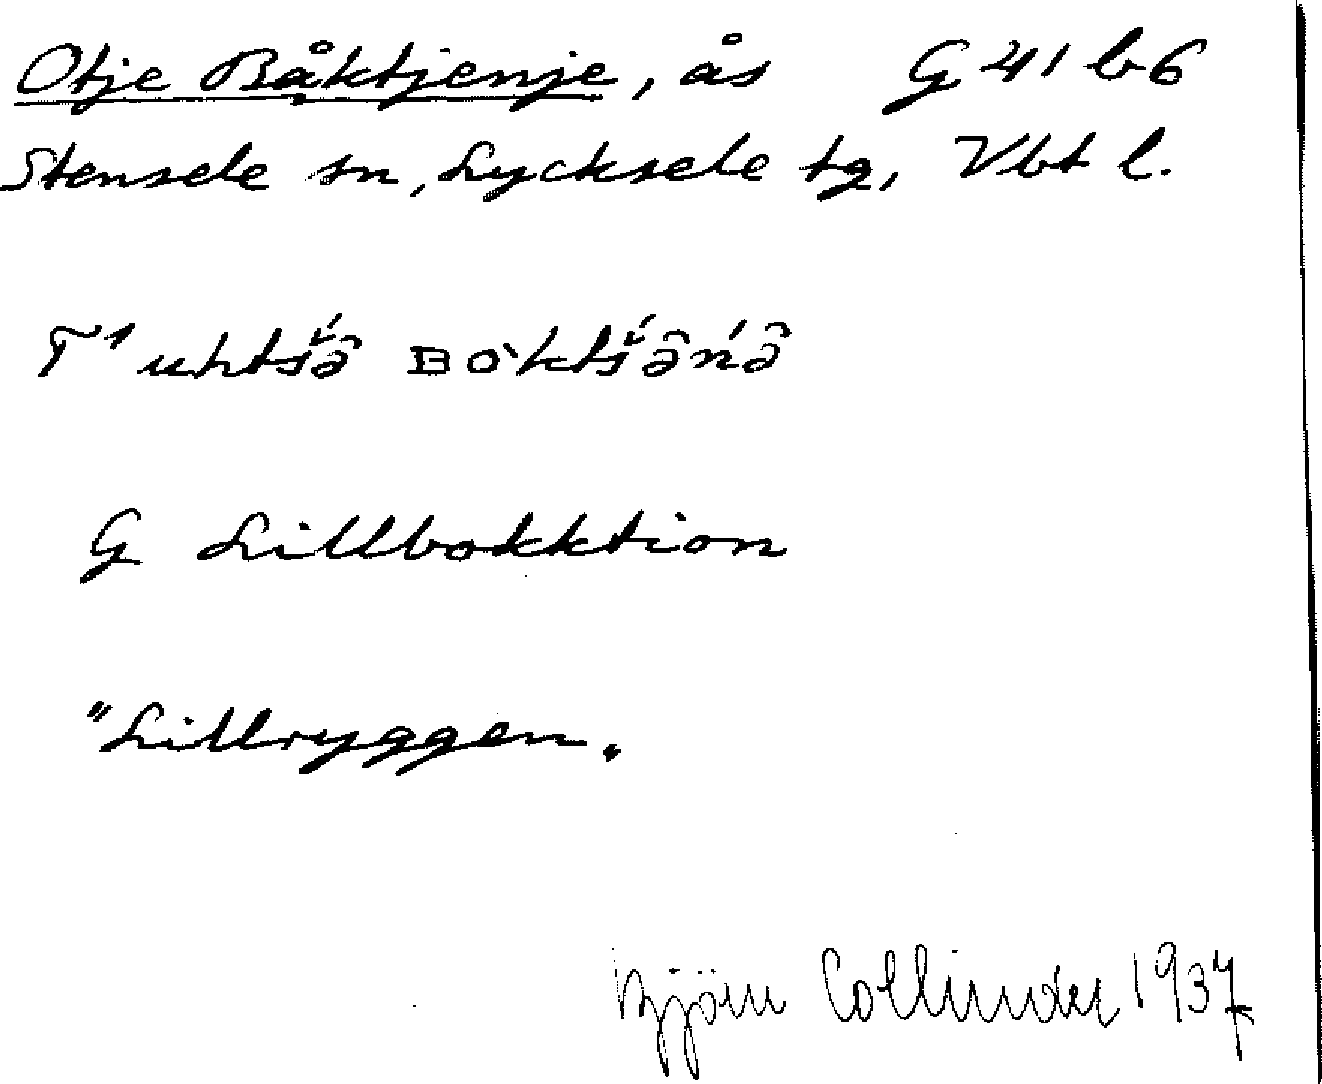 Otje Båktjenje, ås G 41 b 6
Stensele sn, Lycksele tg, Vbt l.
G Lillbokktion
"Lillryggen.
Björn Collinder 1937